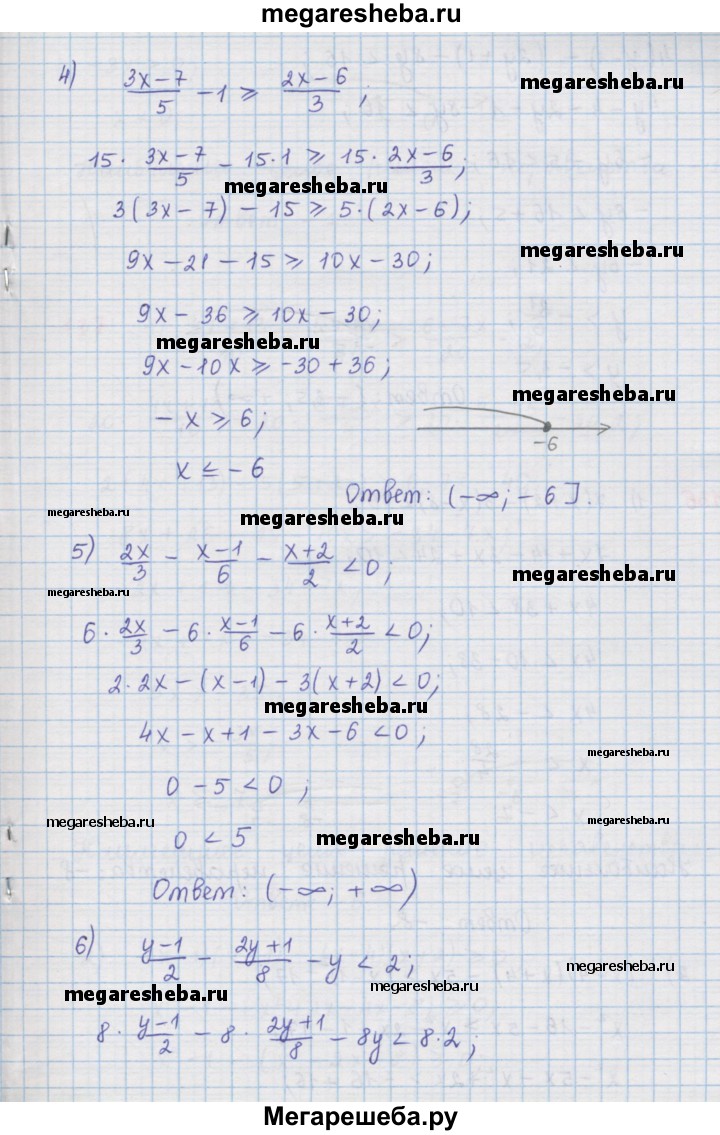 megaresheba.ru
4) (3x-7)/5 - 1 ⩾ (2x-6)/3 ;
megaresheba.ru
15 · (3x-7)/5 - 15·1 ⩾ 15 · (2x-6)/3 ;
megaresheba.ru
3(3x-7) - 15 ⩾ 5·(2x-6);
megaresheba.ru
9x-21-15 ⩾ 10x-30;
9x-36 ⩾ 10x-30;
megaresheba.ru
9x-10x ⩾ -30+36;
megaresheba.ru
-x ⩾ 6;
-6
x ≤ -6
Ответ: (-∞; -6].
megaresheba.ru
megaresheba.ru
5) 2x/3 - (x-1)/6 - (x+2)/2 < 0;
megaresheba.ru
megaresheba.ru
6 · 2x/3 - 6 · (x-1)/6 - 6 · (x+2)/2 < 0;
2·2x - (x-1) - 3(x+2) < 0;
megaresheba.ru
4x-x+1-3x-6 < 0;
megaresheba.ru
0-5 < 0 ;
megaresheba.ru
megaresheba.ru
0 < 5
megaresheba.ru
Ответ: (-∞; +∞)
6) (y-1)/2 - (2y+1)/8 - y < 2;
megaresheba.ru
megaresheba.ru
megaresheba.ru
8 · (y-1)/2 - 8 · (2y+1)/8 - 8y < 8·2;
Мегарешеба.ру